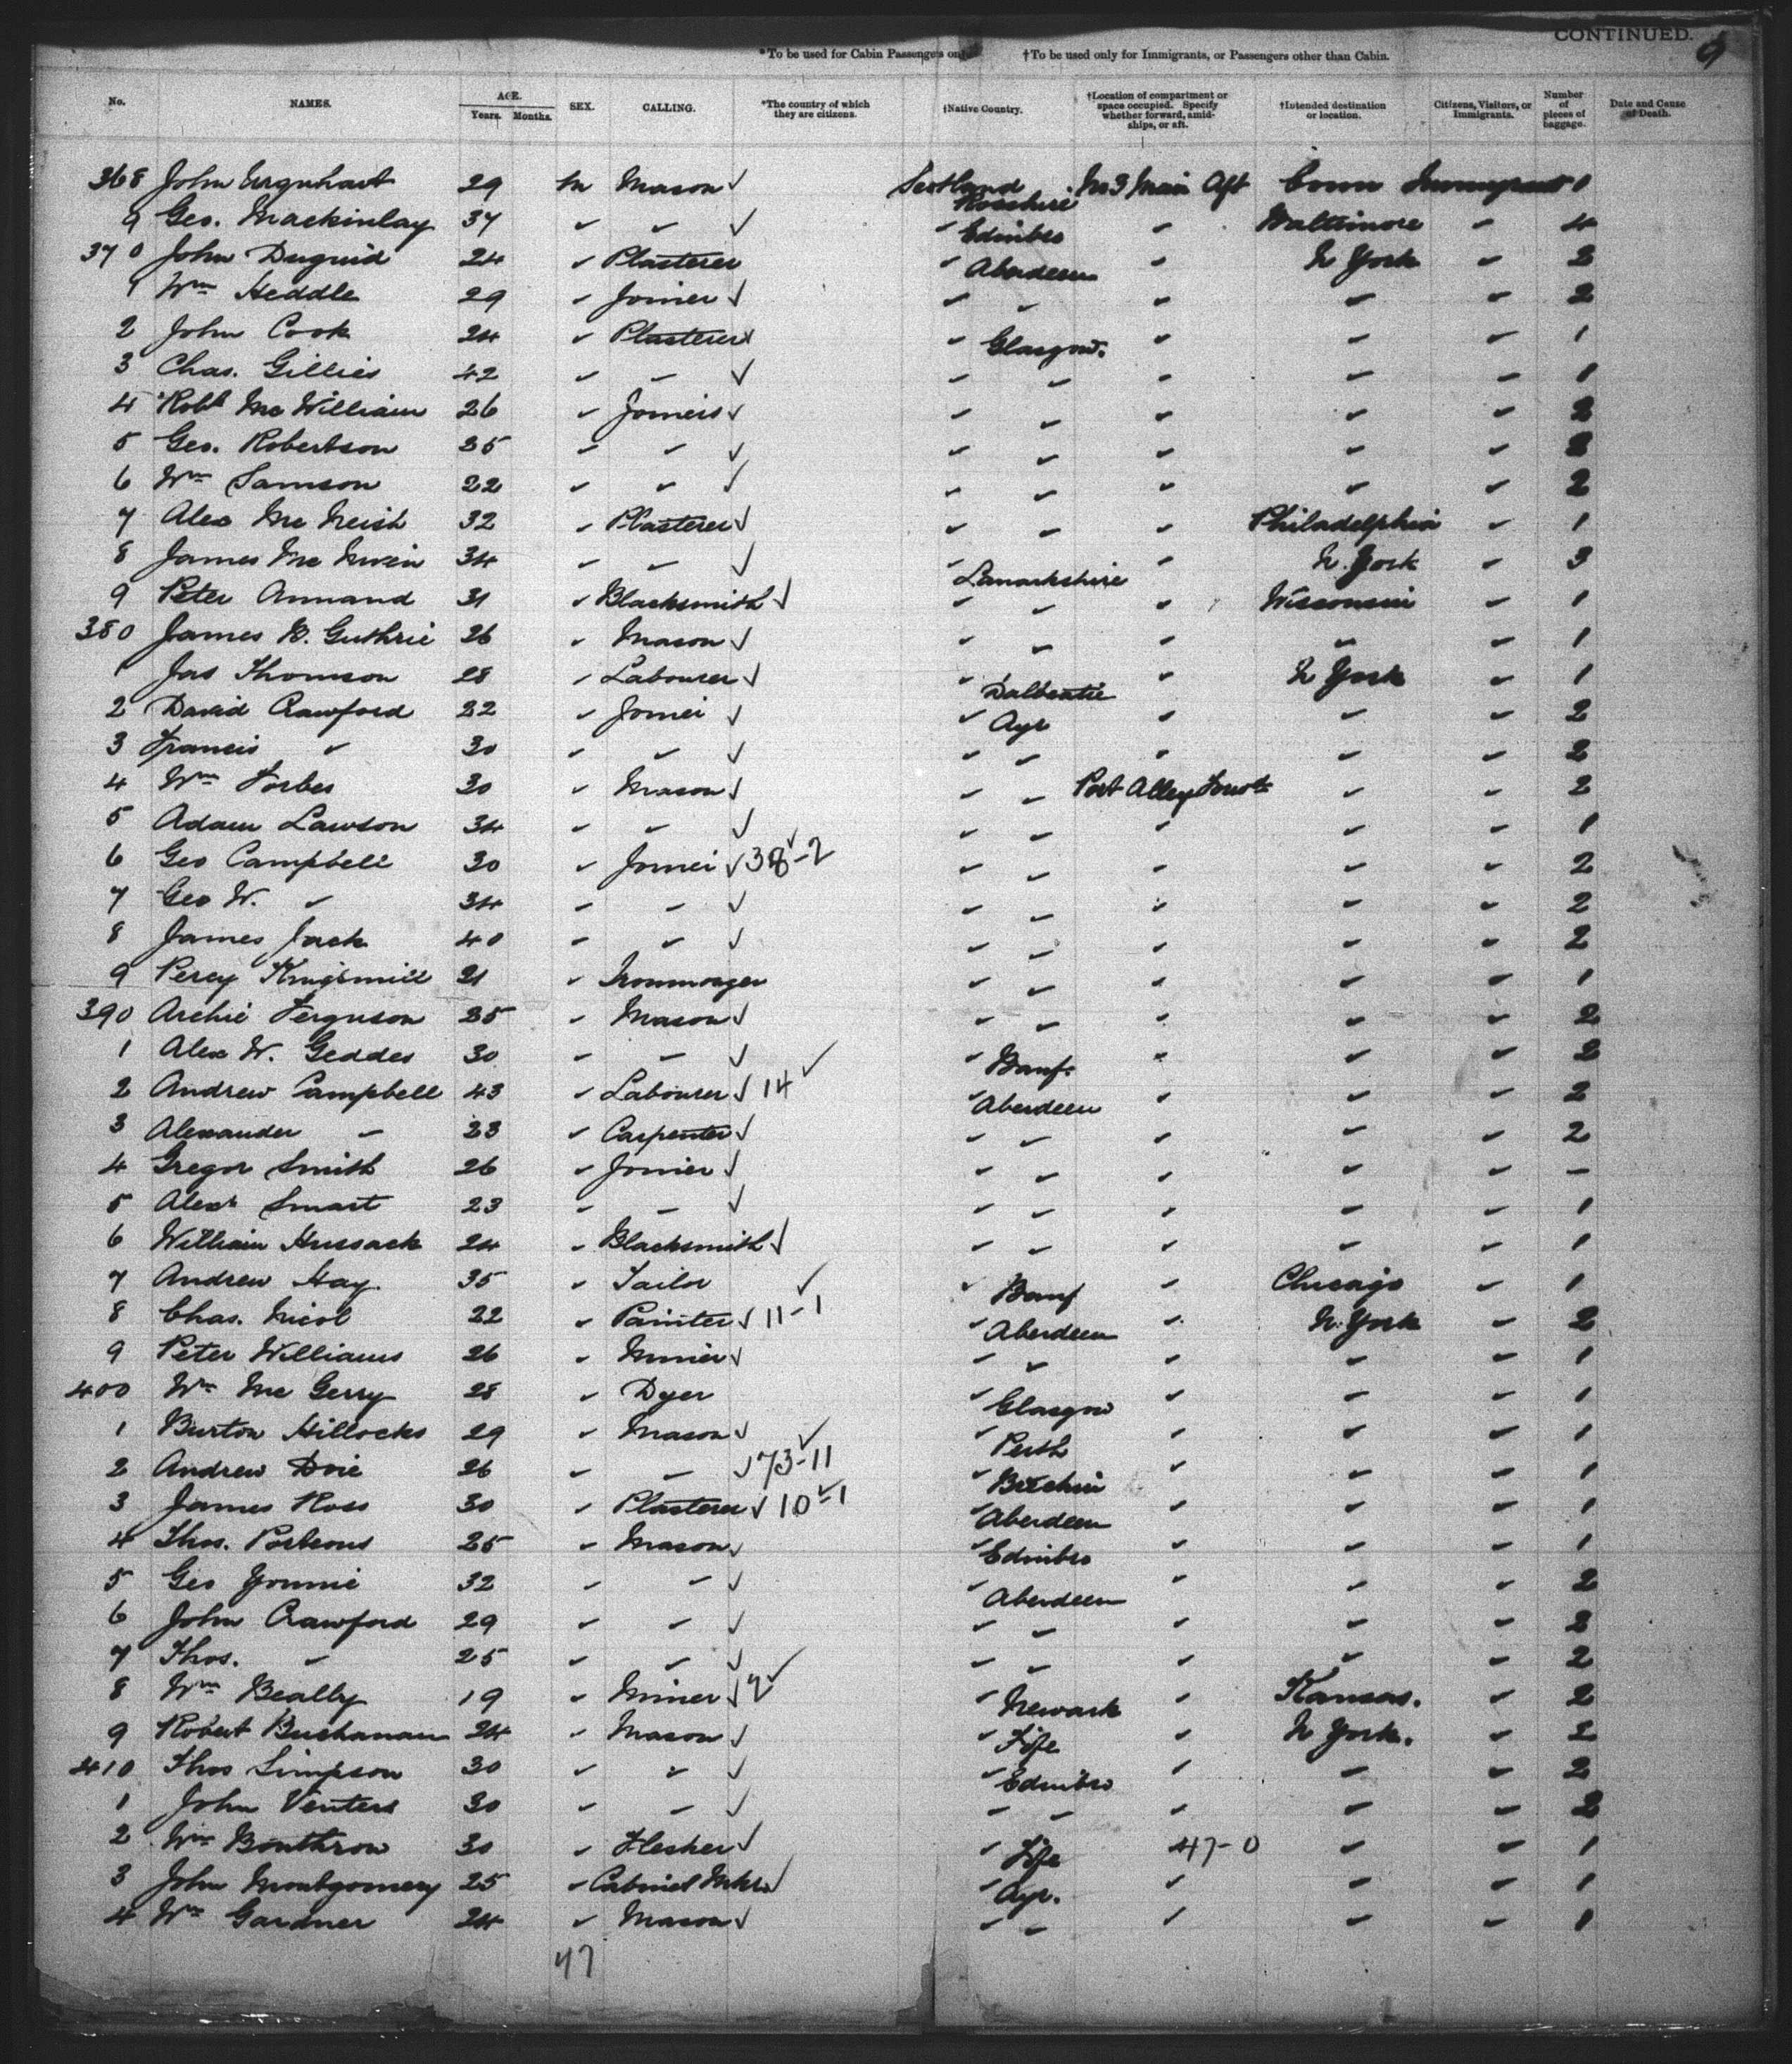 CONTINUED. 9
*To be used for Cabin Passengers only. †To be used only for Immigrants, or Passengers other than Cabin.
No. NAMES. AGE. Years. Months. SEX. CALLING. *The country of which they are citizens. †Native Country. †Location of compartment or space occupied. Specify whether forward, amidships, or aft. †Intended destination or location. Citizens, Visitors, or Immigrants. Number of pieces of baggage. Date and Cause of Death.
368 John Urquhart 29 m Mason ✓ Scotland Rosshire No 3 Main Aft Conn Immigrant 1
9 Geo. Mackinlay 37 " " ✓ " Edinbro " Baltimore " 4
370 John Duguid 24 " Plasterer " Aberdeen " N York " 2
1 Wm Heddle 29 " Joiner ✓ " " " " " 2
2 John Cook 24 " Plasterer ✓ " Glasgow. " " " 1
3 Chas. Gillies 42 " " ✓ " " " " " 1
4 Robt McWilliam 26 " Joiners ✓ " " " " " 2
5 Geo. Robertson 35 " " ✓ " " " " " 2
6 Wm Samson 22 " " ✓ " " " " " 2
7 Alex McNeish 32 " Plasterer ✓ " " " Philadelphia " 1
8 James Mc 34 " " ✓ " Lanarkshire " N. York " 3
9 Peter Annand 31 " Blacksmith ✓ " " " Wisconsin " 1
380 James B. Guthrie 26 " Mason ✓ " " " " " 1
1 Jas Thomson 28 " Labourer ✓ " Dalbeatie " N York " 1
2 David Crawford 22 " Joiner ✓ " Ayr " " " 2
3 Francis " 30 " " ✓ " " " " " 2
4 Wm Forbes 30 " Mason ✓ " " Port Alley Forwd " " 2
5 Adam Lawson 34 " " ✓ " " " " " 1
6 Geo Campbell 30 " Joiner ✓ 38-2 ✓ " " " " " 2
7 Geo W. " 34 " " ✓ " " " " " 2
8 James Jack 40 " " ✓ " " " " " 2
9 Percy Kingsmill 21 " Ironmonger " " " " " 1
390 Archie Ferguson 25 " Mason ✓ " " " " " 2
1 Alex W. Geddes 30 " " ✓ " Banf. " " " 2
2 Andrew Campbell 43 " Labourer ✓ 14 ✓ " Aberdeen " " " 2
3 Alexander " 23 " Carpenter ✓ " " " " " 2
4 Gregor Smith 26 " Joiner ✓ " " " " " –
5 Alexr Smart 23 " " ✓ " " " " " 1
6 William Hussack 24 " Blacksmith ✓ " " " " " 1
7 Andrew Hay. 35 " Tailor " Banf " Chicago " 1
8 Chas. Nicol 22 " Painter ✓ 11-1 ✓ " Aberdeen " N. York " 2
9 Peter Williams 26 " Miner ✓ " " " " " 1
400 Wm McGerry 28 " Dyer " Glasgow " " " 1
1 Burton Hillocks 29 " Mason ✓ " Perth " " " 1
2 Andrew Doie 26 " " ✓ 73-11 ✓ " Brechin " " " 1
3 James Ross 30 " Plasterer ✓ 10-1 ✓ " Aberdeen " " " 1
4 Thos. Porteous 25 " Mason ✓ " Edinbro " " " 1
5 Geo Younie 32 " " ✓ " Aberdeen " " " 2
6 John Crawford 29 " " ✓ " " " " " 2
7 Thos. " 25 " " ✓ " " " " " 2
8 Wm Bealby 19 " Miner ✓ 2 ✓ " Newark " Kansas. " 2
9 Robert Buchanan 24 " Mason ✓ " Fife " N York. " 2
410 Thos Simpson 30 " " ✓ " Edinbro " " " 2
1 John Venters 30 " " ✓ " " " " " 2
2 Wm Bonthron 30 " Flesher ✓ " Fife 47-0 " " 1
3 John Montgomery 25 " Cabinet Mkr ✓ " Ayr. " " " 1
4 Wm Gardner 24 " Mason ✓ " " " " " 1
47